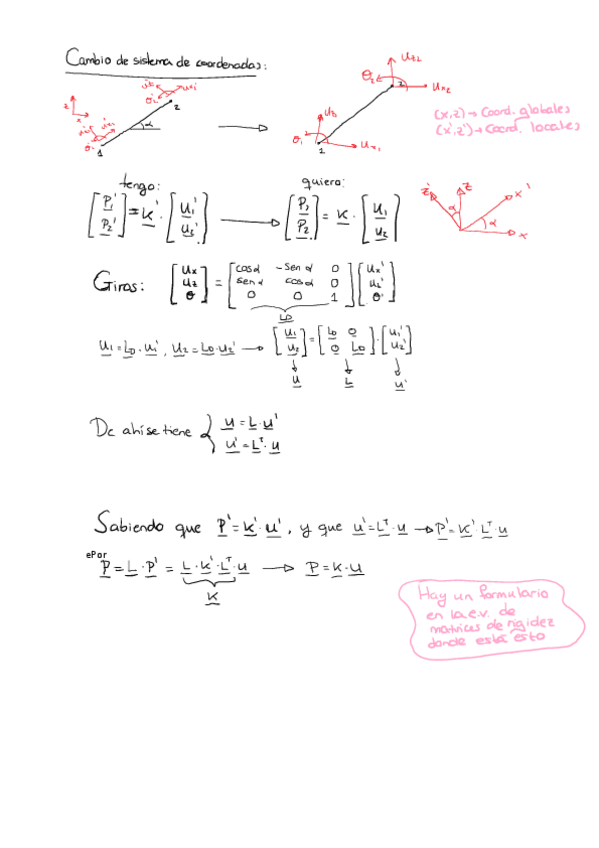 Cambio de sistema de coordenadas:
(x,z) → Coord. globales
(x',z') → Coord. locales
tengo: quiero:
[P₁' P₂'] = K' · [u₁' u₂'] → [P₁ P₂] = K · [u₁ u₂]
Giros: [ux uz θ] = [cosα -senα 0; senα cosα 0; 0 0 1] [ux' uz' θ']
L₀
u₁ = L₀ · u₁', u₂ = L₀ · u₂' → [u₁ u₂] = [L₀ 0; 0 L₀] · [u₁' u₂']
u L u'
De ahí se tiene { u = L · u'
u' = Lᵀ · u
Sabiendo que P' = K' · u', y que u' = Lᵀ · u → P' = K' · Lᵀ · u
ePor
P = L · P' = L · K' · Lᵀ · u → P = K · u
K
Hay un formulario
en la e.v. de
matrices de rigidez
donde está esto